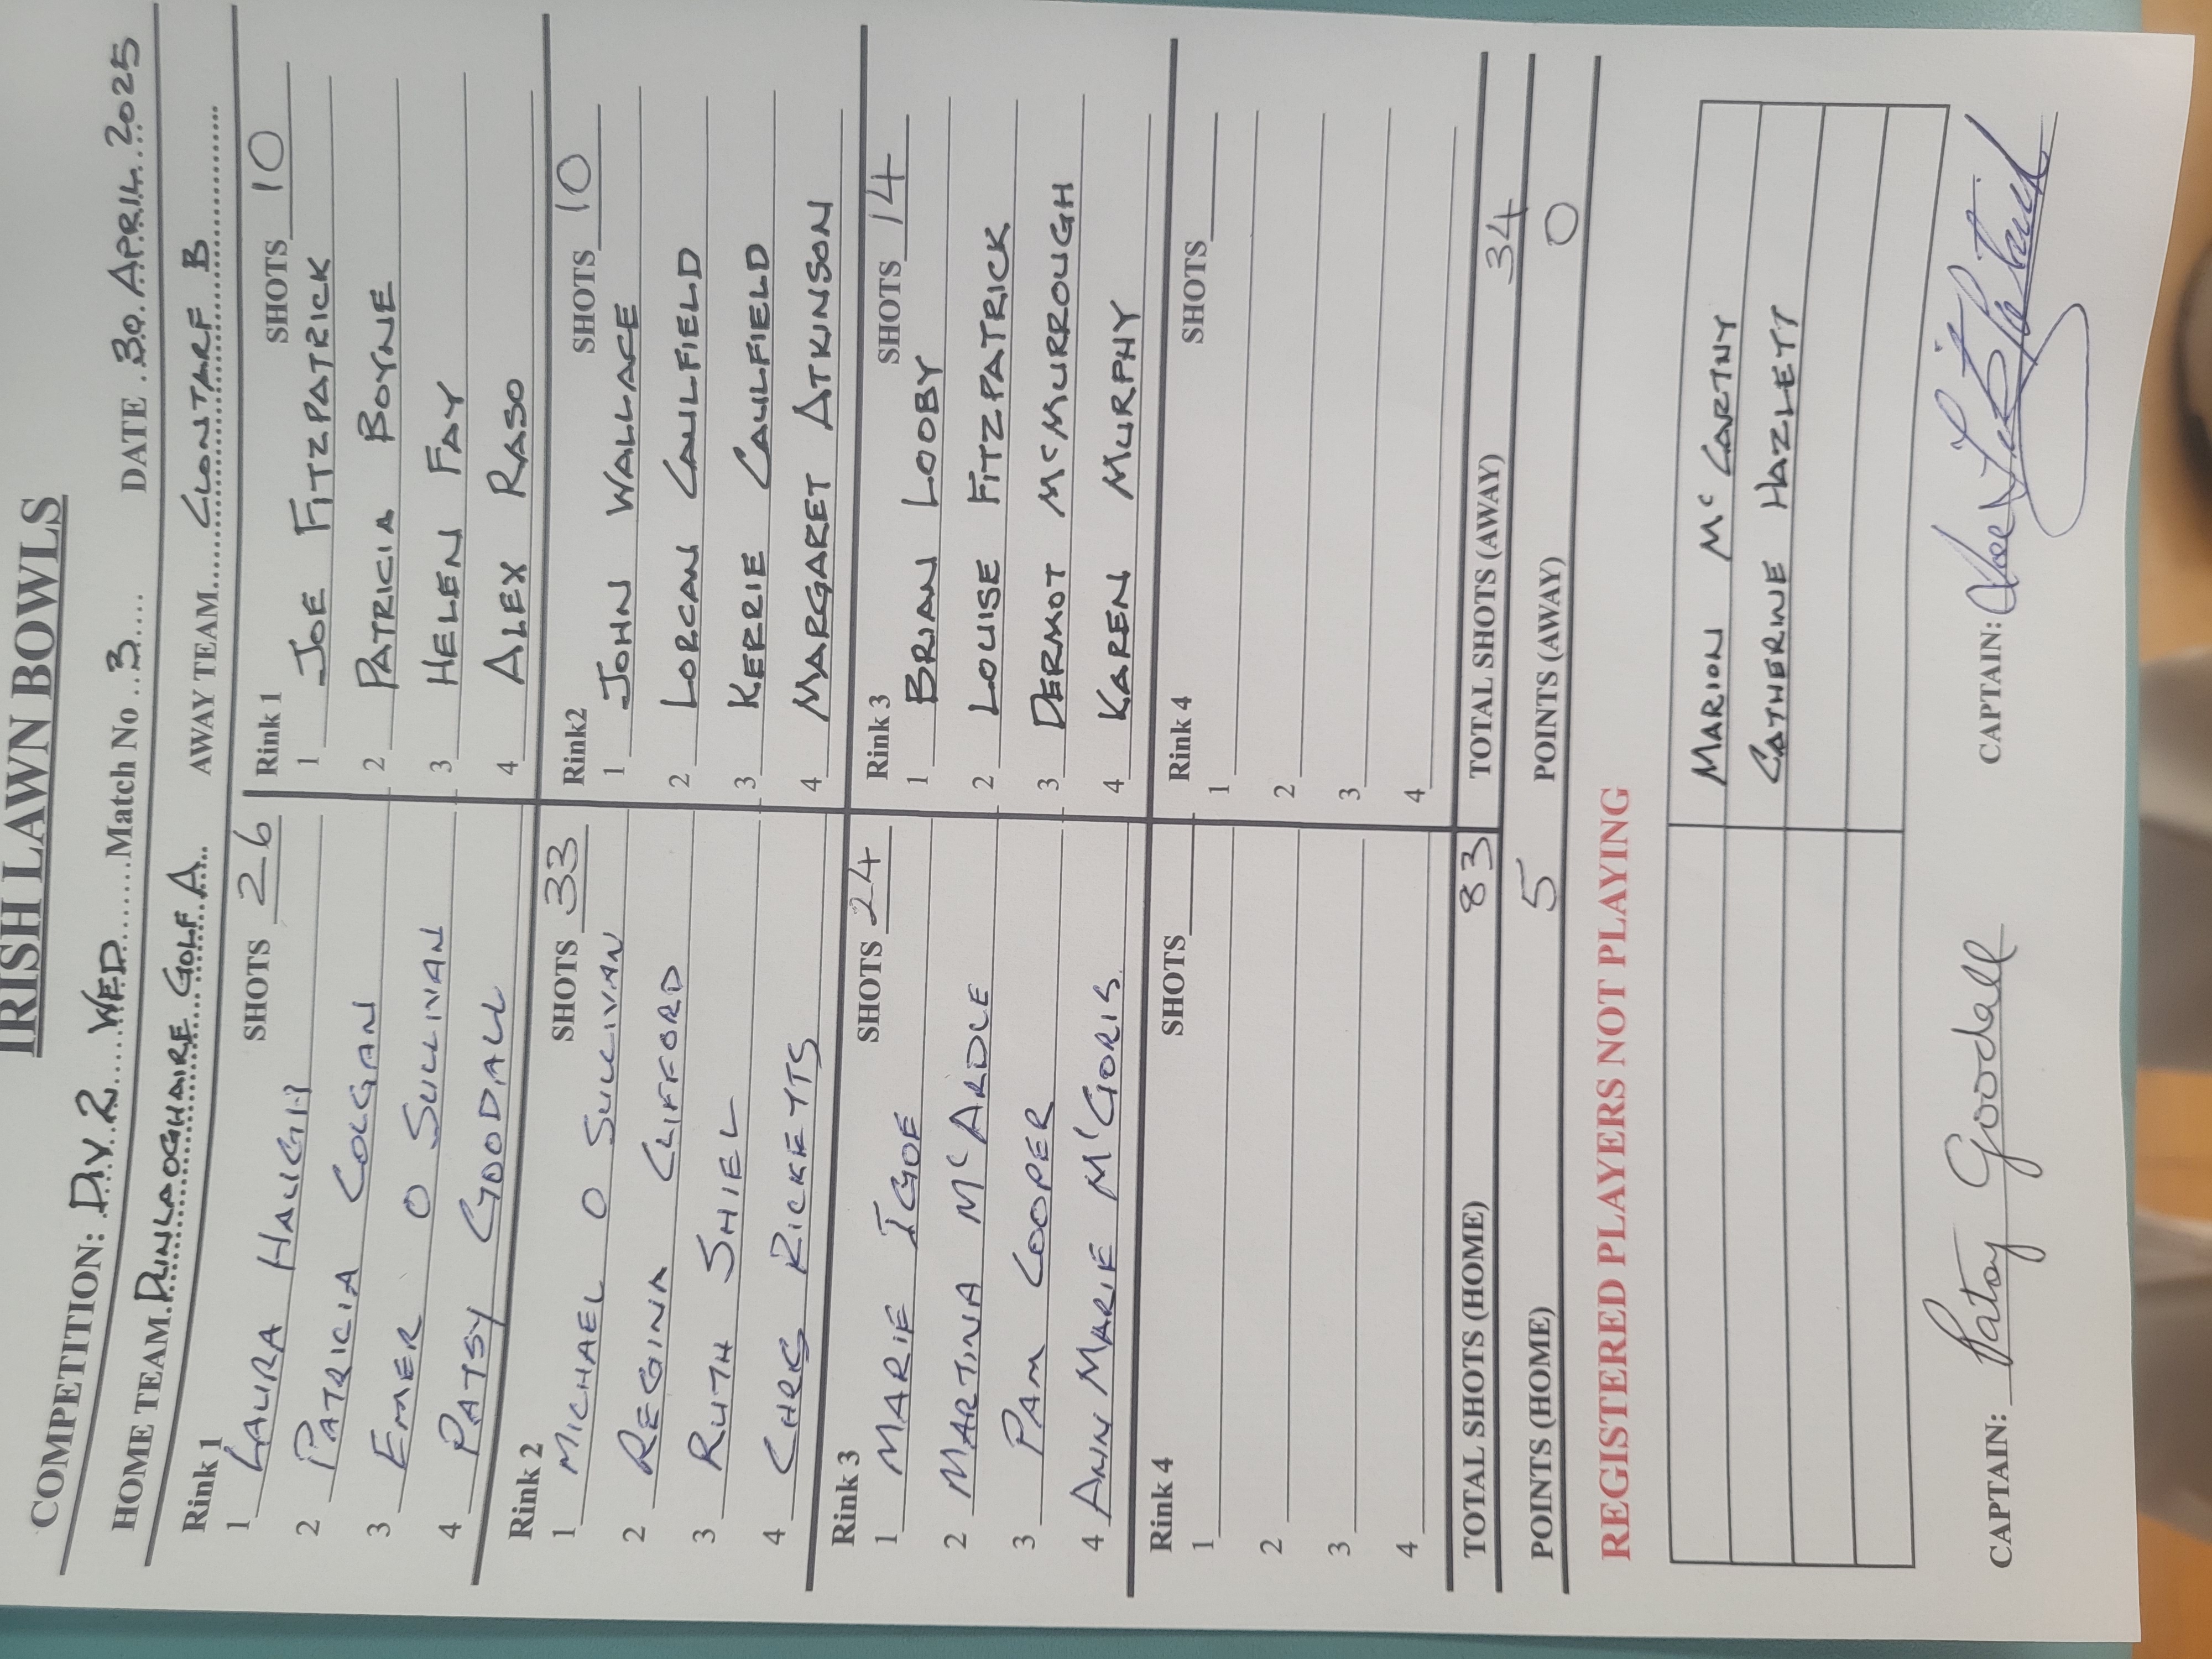 IRISH LAWN BOWLS
COMPETITION: DIV.2 WED Match No 3 DATE 30 APRIL 2025
HOME TEAM DUNLAOGHAIRE GOLF A AWAY TEAM CLONTARF B
Rink 1 SHOTS 26
1 LAURA HAUGH
2 PATRICIA COLGAN
3 EMER O SULLIVAN
4 PATSY GOODALL
Rink 1 SHOTS 10
1 JOE FITZPATRICK
2 PATRICIA BOYNE
3 HELEN FAY
4 ALEX RASO
Rink 2 SHOTS 33
1 MICHAEL O SULLIVAN
2 REGINA CLIFFORD
3 RUTH SHIEL
4 CHRIS RICKETTS
Rink2 SHOTS 10
1 JOHN WALLACE
2 LORCAN CAULFIELD
3 KERRIE CAULFIELD
4 MARGARET ATKINSON
Rink 3 SHOTS 24
1 MARIE IGOE
2 MARTINA McARDLE
3 PAM COOPER
4 ANN MARIE McGORIS
Rink 3 SHOTS 14
1 BRIAN LOOBY
2 LOUISE FITZPATRICK
3 DERMOT McMURROUGH
4 KAREN MURPHY
Rink 4 SHOTS
1
2
3
4
Rink 4 SHOTS
1
2
3
4
TOTAL SHOTS (HOME) 83 TOTAL SHOTS (AWAY) 34
POINTS (HOME) 5 POINTS (AWAY) 0
REGISTERED PLAYERS NOT PLAYING
MARION McCARTNY
CATHERINE HAZLETT
CAPTAIN: Patsy Goodall CAPTAIN: Joe Fitzpatrick